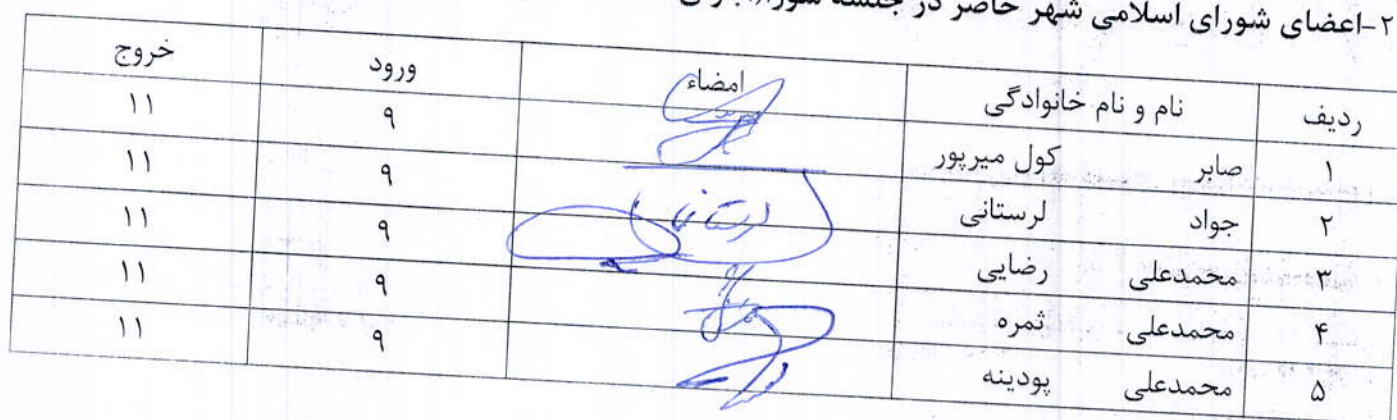 ۲-اعضای شورای اسلامی شهر حاضر در جلسه
ردیف نام و نام خانوادگی امضاء ورود خروج
۱ صابر کول میرپور ۹ ۱۱
۲ جواد لرستانی لرستانی ۹ ۱۱
۳ محمدعلی رضایی ۹ ۱۱
۴ محمدعلی ثمره ۹ ۱۱
۵ محمدعلی پودینه ۹ ۱۱